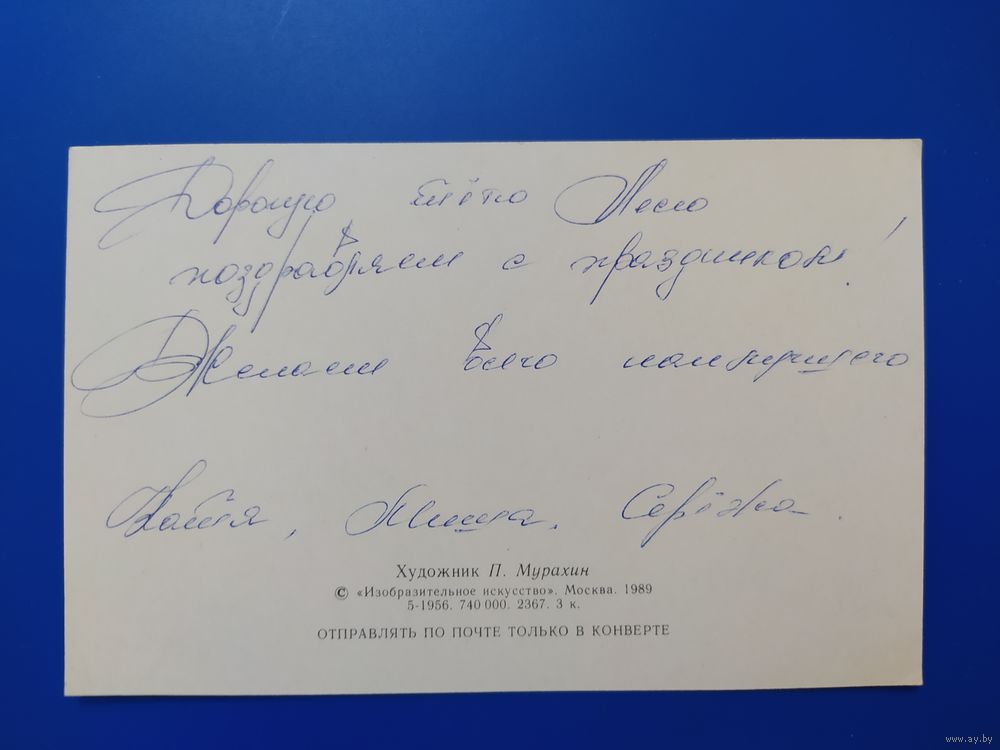 Дорогую тётю Лесю
поздравляем с праздником!
Желаем всего наилучшего
Катя, Миша, Серёжа.
Художник П. Мурахин
© «Изобразительное искусство». Москва. 1989
5-1956. 740 000. 2367. 3 к.
ОТПРАВЛЯТЬ ПО ПОЧТЕ ТОЛЬКО В КОНВЕРТЕ
www.ay.by